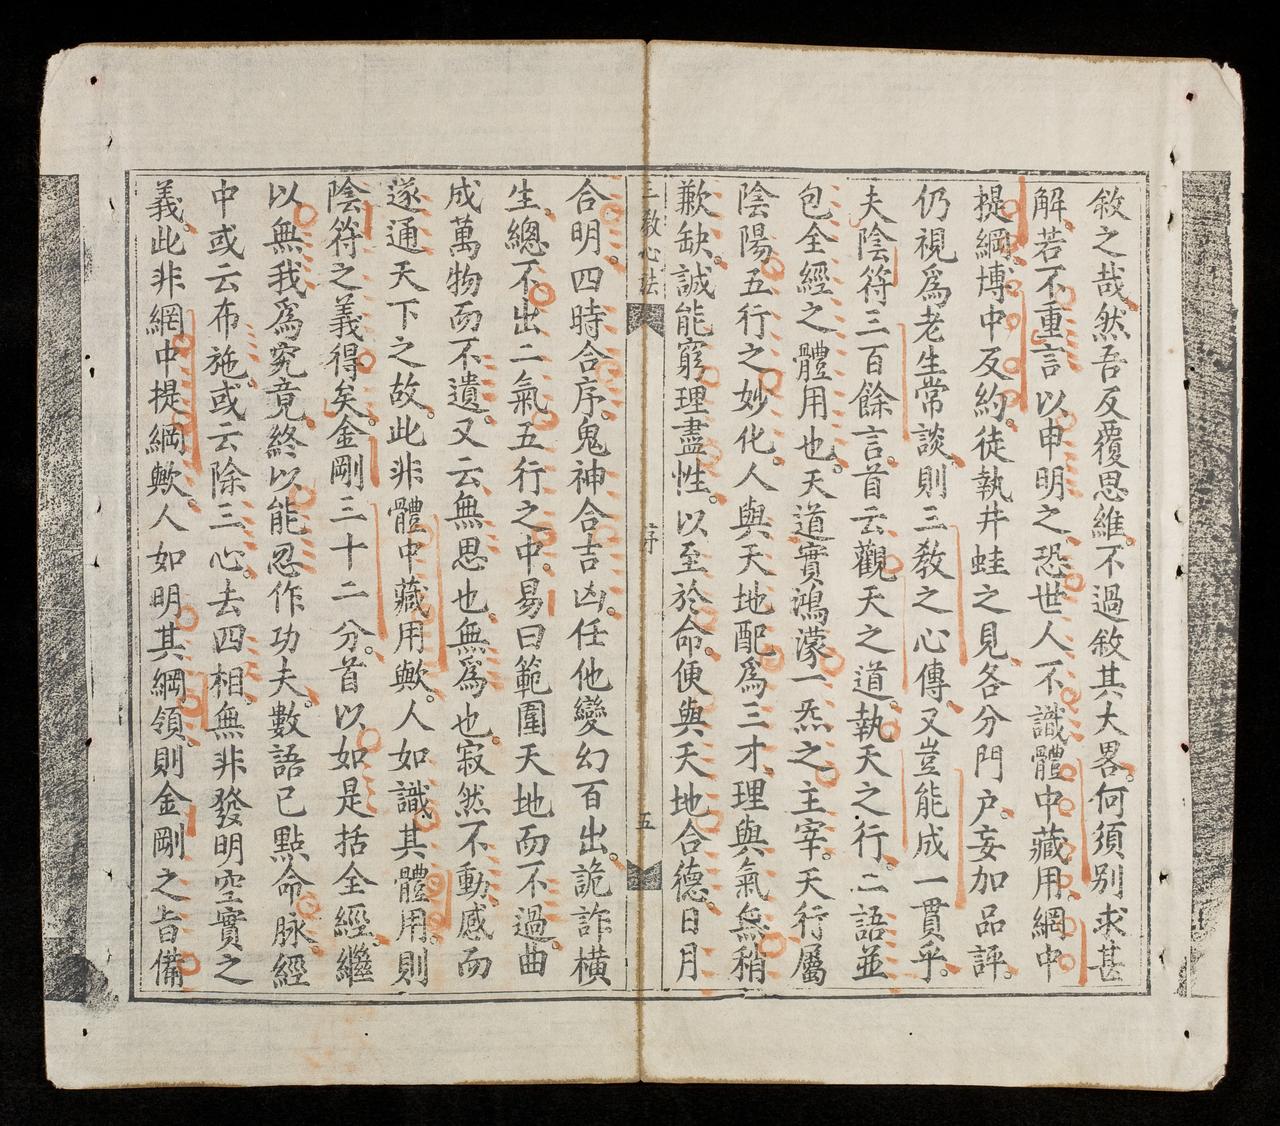 敘之哉然吾反覆思維不過敘其大畧何須別求甚
解若不重言以申明之恐世人不識體中藏用綱中
提綱博中反約徒執井蛙之見各分門户妄加品評
仍視爲老生常談則三教之心傳又豈能成一貫乎
夫陰符三百餘言首云觀天之道執天之行二語並
包全經之體用也天道實鴻濛一炁之主宰天行屬
陰陽五行之妙化人與天地配爲三才理與氣無稍
歉缺誠能窮理盡性以至於命便與天地合德日月
三教心法 序 五
合明四時合序鬼神合吉凶任他變幻百出詭詐橫
生總不出二氣五行之中易曰範圍天地而不過曲
成萬物而不遺又云無思也無爲也寂然不動感而
遂通天下之故此非體中藏用歟人如識其體用則
陰符之義得矣金剛三十二分首以如是括全經繼
以無我爲究竟終以能忍作功夫數語已點命脉經
中或云布施或云除三心去四相無非發明空實之
義此非綱中提綱歟人如明其綱領則金剛之旨備